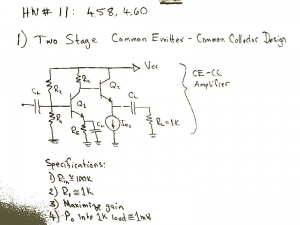 HW # 11: 4.58, 4.60
1) Two Stage Common Emitter - Common Collector Design
Vcc
R2
Rc
Q2
CE-CC
Amplifier
C∞
Q1
C∞
R1
RE
C∞
RL=1K
Specifications:
1) Rin ≅ 100K
2) Ro ≅ 1K
3) Maximize gain
4) Po into 1K load ≅ 1mW